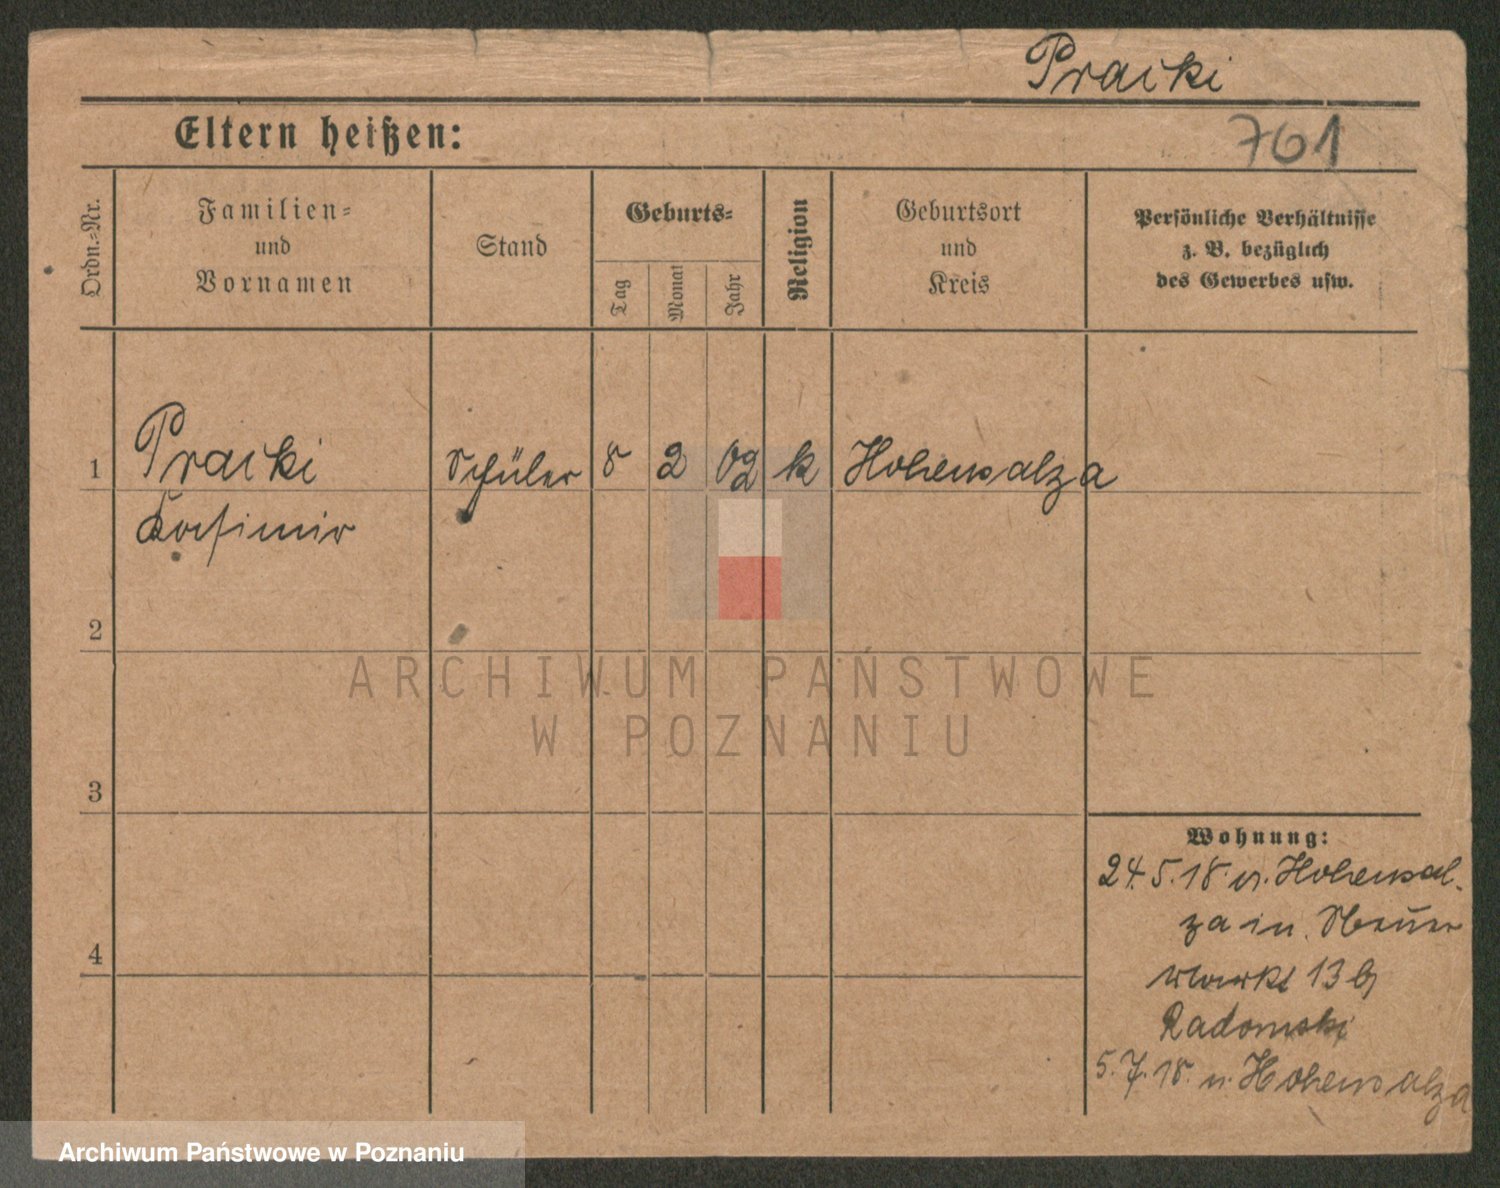 Pracki
761
Eltern heißen:
Ordn.-Nr.
Familien-
und
Vornamen
Stand
Geburts-
Tag
Monat
Jahr
Religion
Geburtsort
und
Kreis
Persönliche Verhältnisse
z. B. bezüglich
des Gewerbes usw.
1
Pracki
Schüler
8
2
02
k
Hohensalza
Kasimir
2
ARCHIWUM PAŃSTWOWE
W POZNANIU
3
Wohnung:
24.5.18 v. Hohensal-
za in
4
markt 13 b
Radomski
5.7.18 n. Hohensalza
Archiwum Państwowe w Poznaniu